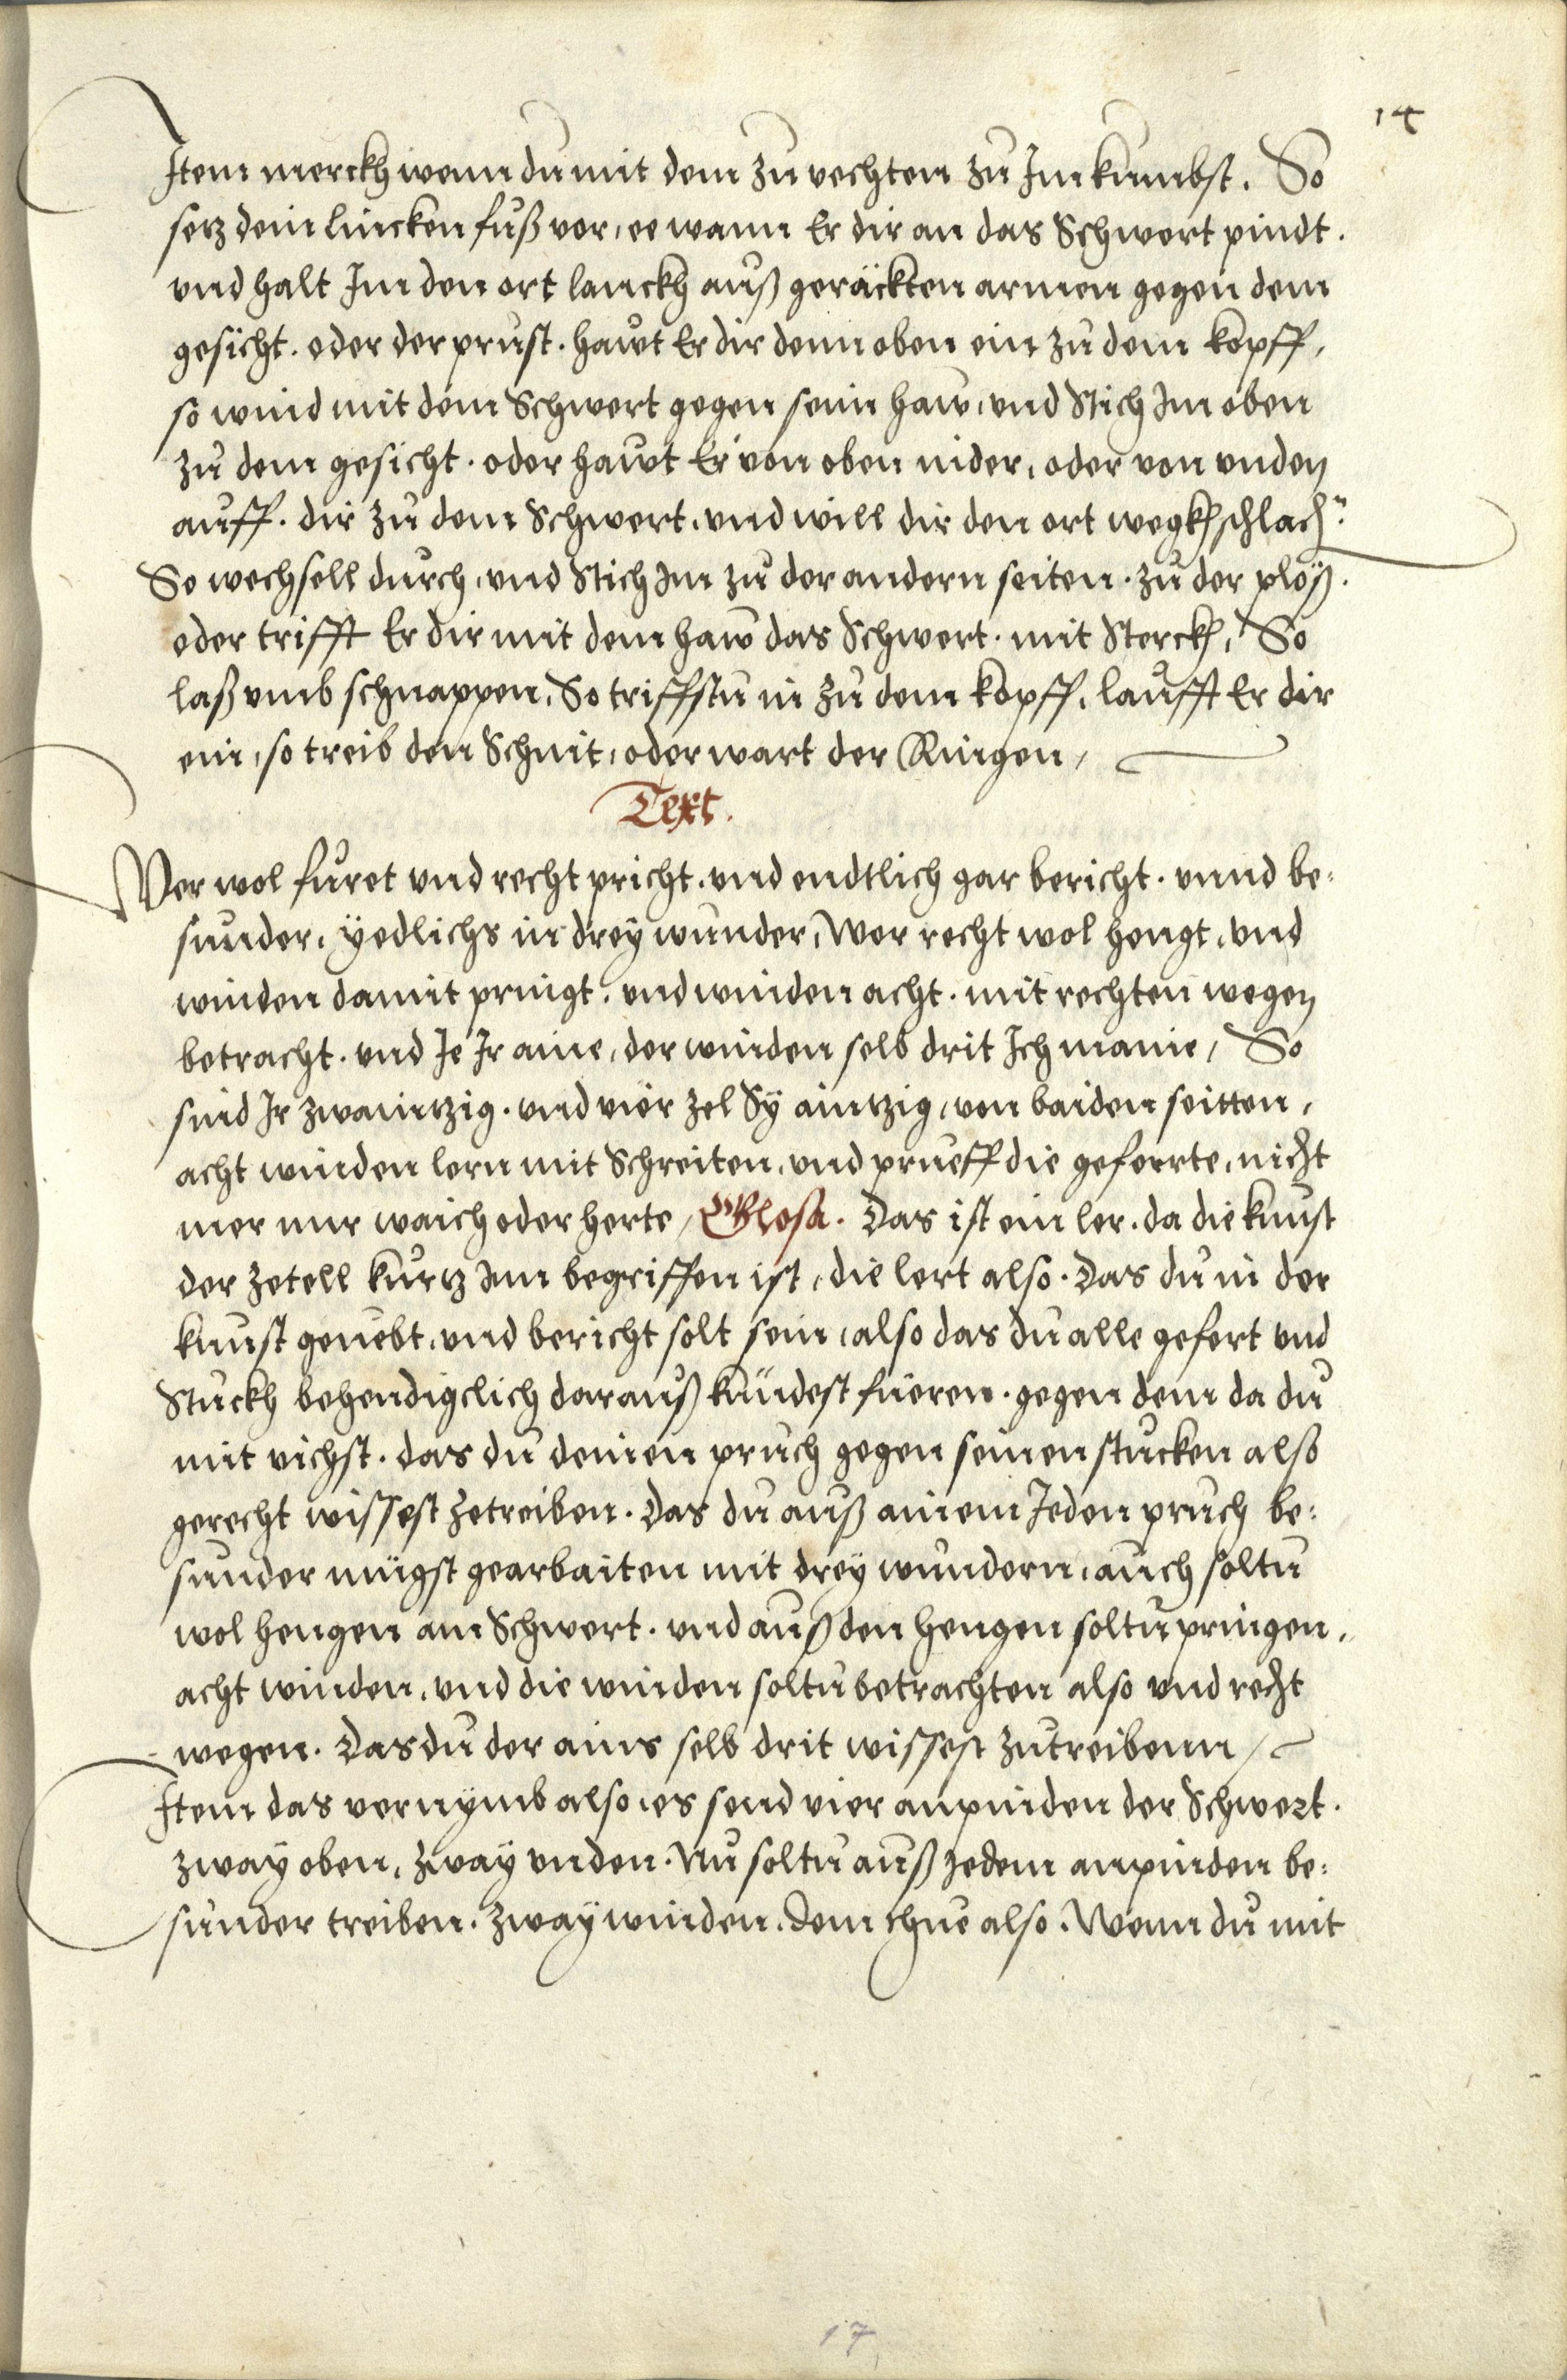 14
Item merckh wenn du mit dem zu vechten zu Im kumbst. So
setz dein lincken fuß vor, ee wann Er dir an das Schwert pindt.
und halt Im den ort lanckh auß geräckten armen gegen dem
gesicht. oder der prust. hawt Er dir denn oben ein zu dem kopff,
so wind mit dem Schwert gegen sein haw, und Stich Im oben
zu dem gesicht. oder hawt Er von oben nider, oder von unden
auff. dir zu dem Schwert, und will dir den ort wegkh schlach̄.
So wechsell durch, und Stich Im zu der andern seiten. zu der plöß.
oder trifft Er dir mit dem haw das Schwert. mit Sterckh, So
laß umb schnappen, So triffstu in zu dem kopff, laufft Er dir
ein, so treib den Schnit, oder wart der Ringen,
Text.
Wer wol furet und recht pricht. und endtlich gar bericht. unnd be:
sunder, ÿedlichs in dreÿ wunder, Wer recht wol hengt, und
winden damit pringt. und winden acht. mit rechten wegen
betracht. und Ie Ir aine, der winden selb drit Ich maine, So
sind Ir zwaintzig. und vier zel Sÿ aintzig, von baiden seitten,
acht winden lern mit Schreiten, und prueff die geferrte, nicht
mer nur waich oder herte, Glosa. Das ist ein ler. da die kunst
der zetell kurtz Inn begriffen ist, die lert also. Das du in der
kunst geuebt, und bericht solt sein, also das du alle gefert und
Stuckh behendigclich darauß kündest fueren. gegen dem da du
mit vichst. das du deinen pruch gegen seinen stucken also
gerecht wissest zetreiben. Das du auß ainem Ieden pruch be:
sunder mügst gearbaiten mit dreÿ wundern, auch soltu
wol hengen am Schwert. und auß den hengen soltu pringen,
acht winden, und die winden soltu betrachten also und recht
wegen. Das du der ains selb drit wissest zutreibenn,
Item das vernÿmb also, es send vier anpinden der Schwert.
zwaÿ oben, zwaÿ unden. Nu soltu auß Iedem anpinden be:
sunder treiben. zwaÿ winden. dem thue also. Wenn du mit
17